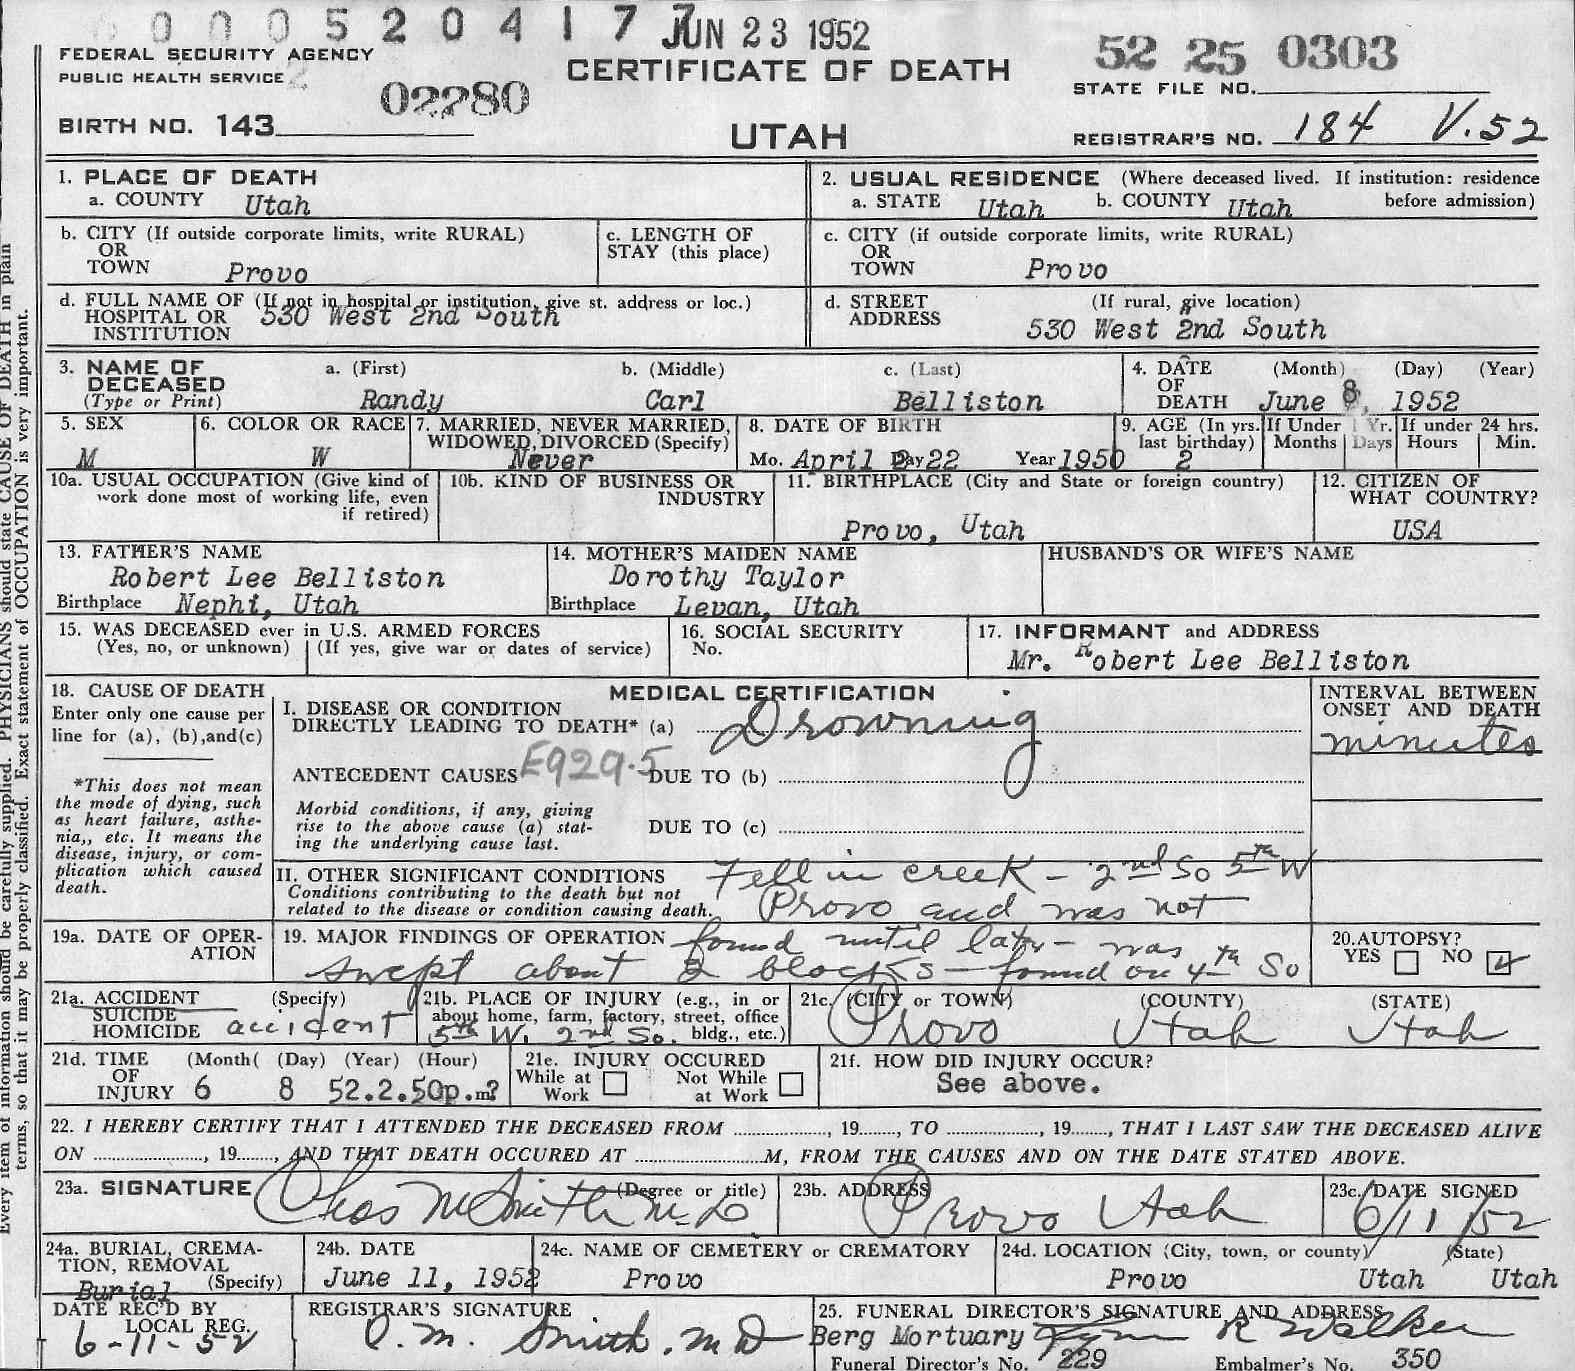 0 0 0 5 2 0 4 1 7 7 JUN 23 1952
FEDERAL SECURITY AGENCY
PUBLIC HEALTH SERVICE
CERTIFICATE OF DEATH
52 25 0303
STATE FILE NO.
02280
BIRTH NO. 143
UTAH
REGISTRAR'S NO. 184 V.52
1. PLACE OF DEATH
a. COUNTY Utah
2. USUAL RESIDENCE (Where deceased lived. If institution: residence before admission)
a. STATE Utah b. COUNTY Utah
b. CITY (If outside corporate limits, write RURAL)
OR
TOWN Provo
c. LENGTH OF
STAY (this place)
c. CITY (if outside corporate limits, write RURAL)
OR
TOWN Provo
d. FULL NAME OF (If not in hospital or institution, give st. address or loc.)
HOSPITAL OR
INSTITUTION 530 West 2nd South
d. STREET (If rural, give location)
ADDRESS 530 West 2nd South
3. NAME OF
DECEASED
(Type or Print)
a. (First) b. (Middle) c. (Last)
Randy Carl Belliston
4. DATE (Month) (Day) (Year)
OF
DEATH June 8, 1952
5. SEX
M
6. COLOR OR RACE
W
7. MARRIED, NEVER MARRIED,
WIDOWED, DIVORCED (Specify)
Never
8. DATE OF BIRTH
Mo. April Day 22 Year 1950
9. AGE (In yrs.
last birthday)
2
If Under 1 Yr.
Months Days
If under 24 hrs.
Hours Min.
10a. USUAL OCCUPATION (Give kind of
work done most of working life, even
if retired)
10b. KIND OF BUSINESS OR
INDUSTRY
11. BIRTHPLACE (City and State or foreign country)
Provo, Utah
12. CITIZEN OF
WHAT COUNTRY?
USA
13. FATHER'S NAME
Robert Lee Belliston
Birthplace Nephi, Utah
14. MOTHER'S MAIDEN NAME
Dorothy Taylor
Birthplace Levan, Utah
HUSBAND'S OR WIFE'S NAME
15. WAS DECEASED ever in U.S. ARMED FORCES
(Yes, no, or unknown) (If yes, give war or dates of service)
16. SOCIAL SECURITY
No.
17. INFORMANT and ADDRESS
Mr. Robert Lee Belliston
18. CAUSE OF DEATH
Enter only one cause per
line for (a), (b),and(c)
*This does not mean
the mode of dying, such
as heart failure, asthe-
nia,, etc. It means the
disease, injury, or com-
plication which caused
death.
MEDICAL CERTIFICATION
I. DISEASE OR CONDITION
DIRECTLY LEADING TO DEATH* (a) Drowning
ANTECEDENT CAUSES E929.5 DUE TO (b)
Morbid conditions, if any, giving
rise to the above cause (a) stat-
ing the underlying cause last.
DUE TO (c)
INTERVAL BETWEEN
ONSET AND DEATH
minutes
II. OTHER SIGNIFICANT CONDITIONS
Conditions contributing to the death but not
related to the disease or condition causing death.
Fell in creek - 2nd So 5th W
Provo and was not
19a. DATE OF OPER-
ATION
19. MAJOR FINDINGS OF OPERATION found until later - was
swept about 2 blocks - found on 4th So
20. AUTOPSY?
YES NO
21a. ACCIDENT (Specify)
SUICIDE
HOMICIDE accident
21b. PLACE OF INJURY (e.g., in or
about home, farm, factory, street, office
bldg., etc.)
5th W. 2nd So.
21c. (CITY or TOWN) (COUNTY) (STATE)
Provo Utah Utah
21d. TIME (Month( (Day) (Year) (Hour)
OF
INJURY 6 8 52.2.50p.m?
21e. INJURY OCCURED
While at
Work
Not While
at Work
21f. HOW DID INJURY OCCUR?
See above.
22. I HEREBY CERTIFY THAT I ATTENDED THE DECEASED FROM ..............., 19......, TO ..............., 19......, THAT I LAST SAW THE DECEASED ALIVE
ON ..............., 19......, AND THAT DEATH OCCURED AT ...............M, FROM THE CAUSES AND ON THE DATE STATED ABOVE.
23a. SIGNATURE (Degree or title)
Chas M Smith M.D
23b. ADDRESS
Provo Utah
23c. DATE SIGNED
6/11/52
24a. BURIAL, CREMA-
TION, REMOVAL
(Specify)
Burial
24b. DATE
June 11, 1952
24c. NAME OF CEMETERY or CREMATORY
Provo
24d. LOCATION (City, town, or county) (State)
Provo Utah Utah
DATE REC'D BY
LOCAL REG.
6-11-52
REGISTRAR'S SIGNATURE
O. M. Smith. MD
25. FUNERAL DIRECTOR'S SIGNATURE AND ADDRESS
Berg Mortuary R Walker
Funeral Director's No. 229 Embalmer's No. 350
Every item of information should be carefully supplied. PHYSICIANS should state CAUSE OF DEATH in plain
terms, so that it may be properly classified. Exact statement of OCCUPATION is very important.